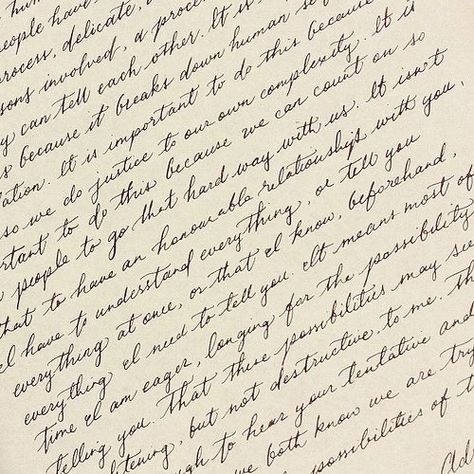 hum
people have
process, delicate,
sons involved, a process
y can tell each other. It is
s because it breaks down human se
ation. It is important to do this because
so we do justice to our own complexity. It is
rtant to do this because we can count on so
people to go that hard way with us. It isn't
that to have an honourable relationship with you,
I have to understand everything, or tell you
everything at once, or that I know, beforehand,
everything I need to tell you. It means most of
time I am eager, longing for the possibility
telling you. That these possibilities may se
tening, but not destructive, to me. Th
gh to hear your tentative and
we both know we are try
possibilities of t
Ad